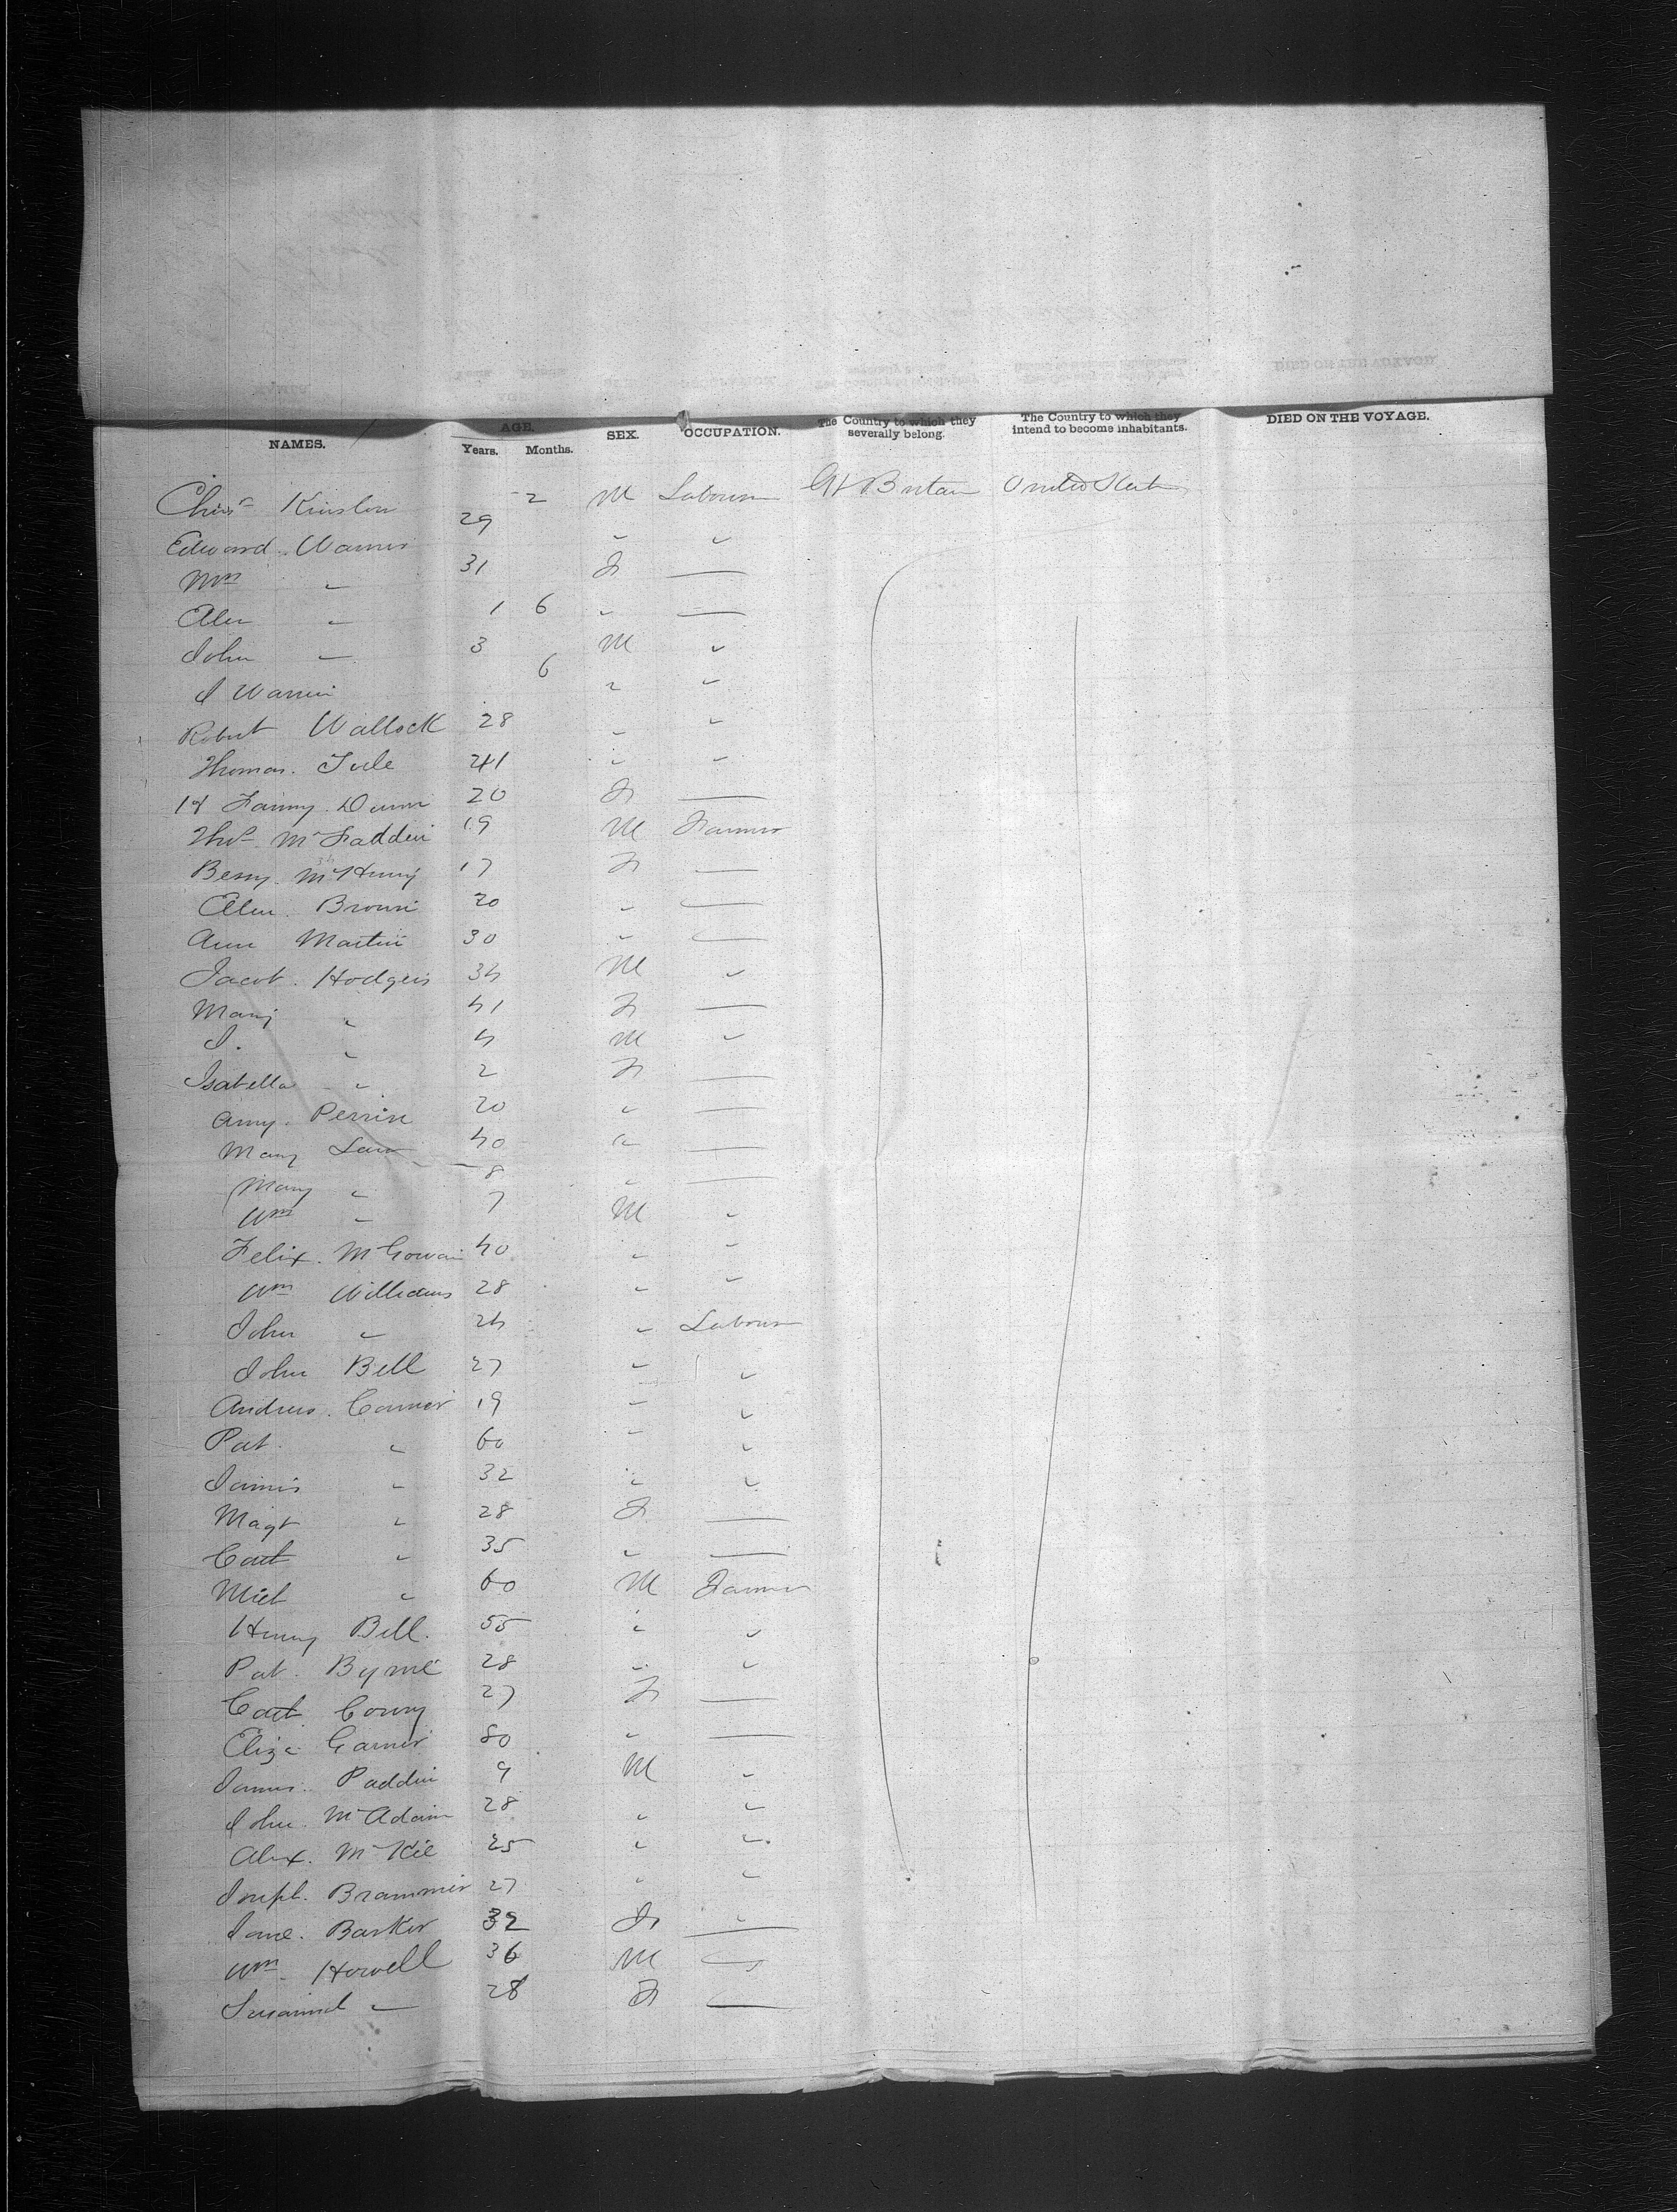 NAMES. AGE. Years. Months. SEX. OCCUPATION. The Country to which they severally belong. The Country to which they intend to become inhabitants. DIED ON THE VOYAGE.
2 M Labourer Gt Britain United States
Edward 29 " "
Mrs " 31 F —
" 1 6 " —
John " 3 M "
J 6 " "
Robert Wallock 28 " "
Thomas 41 " "
Fanny Dunn 20 F —
Thos McFadden 19 M Farmer
Bessy McHenry 17 F —
Ellen Brown 20 " —
Ann Martin 30 " —
Jacob Hodgins 34 M "
Mary " 41 F —
J. " 4 M "
Isabella " 2 F —
Amy Perrin 20 " —
Mary 40 " —
Mary " 8 " —
Wm " 7 M "
Felix McGowan 40 " "
Wm Williams 28 " "
John " 24 " Labourer
John Bell 27 " "
Andrew 19 " "
Pat " 60 " "
James " 32 " "
Magt " 28 F —
Cath " 35 " —
Mich " 60 M Farmer
Henry Bell 55 " "
Pat Byrne 28 " "
Cath 27 F —
Eliza " —
James Padden 9 M "
John McAdam 28 " "
Alex. McKie 25 " "
Joseph Brammer 27 " "
Jane Barker 32 F —
Wm Howell 36 M "
" 28 F —